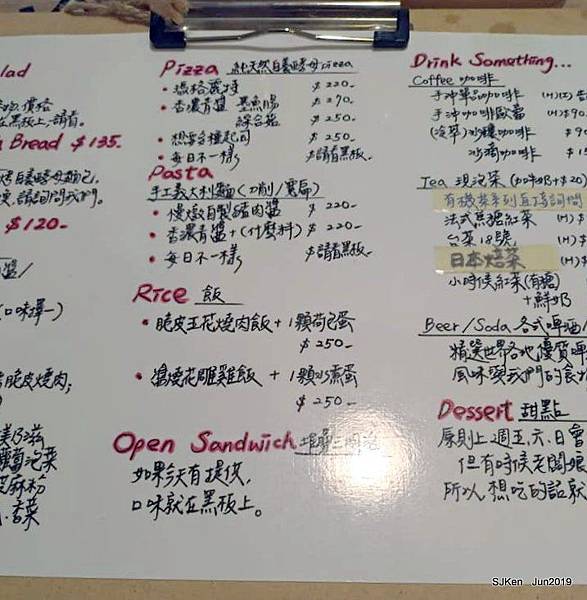 lad
在黑板上,請看。
Bread $135.
$120-
醬/
(口味擇一)
脆皮燒肉;
泡菜
芝麻粉
香菜
Pizza 純天然自養酵母pizza
• 瑪格麗特 $220-
• 香濃青醬 墨魚腸 $290.
綜合菇 $250-
• 想要各種起司 $250-
• 每日不一樣 $請看黑板。
Pasta
手工義大利麵(刀削/寬扁)
• 慢燉自製豬肉醬 $220-
• 香濃青醬+(什麼料) $220-
• 每日不一樣 $請看黑板-
Rice 飯
• 脆皮五花燒肉飯 + 1顆荷包蛋
$250-
• 燒花雕雞飯 + 1顆水煮蛋
$250-
Open Sandwich
如果今天有提供,
口味就在黑板上。
Drink Something...
Coffee 咖啡
手沖單品咖啡 (H)
手沖咖啡歐蕾 (H) $90
(冷萃)冰釀咖啡 $90
冰滴咖啡 $1
Tea 現泡茶 (加鮮奶+$20)
有機茶系列直接詢問
法式焦糖紅茶 (H) $
台茶18號 (H) $
日本焙茶 (H) $
小時候紅茶(有糖)
+鮮奶
Beer/Soda 各式啤酒/
精選世界各地優質啤
風味與我們的食
Dessert 甜點
原則上週五、六、日會
但有時候老闆娘
所以,想吃的話就
SJKen Jun2019